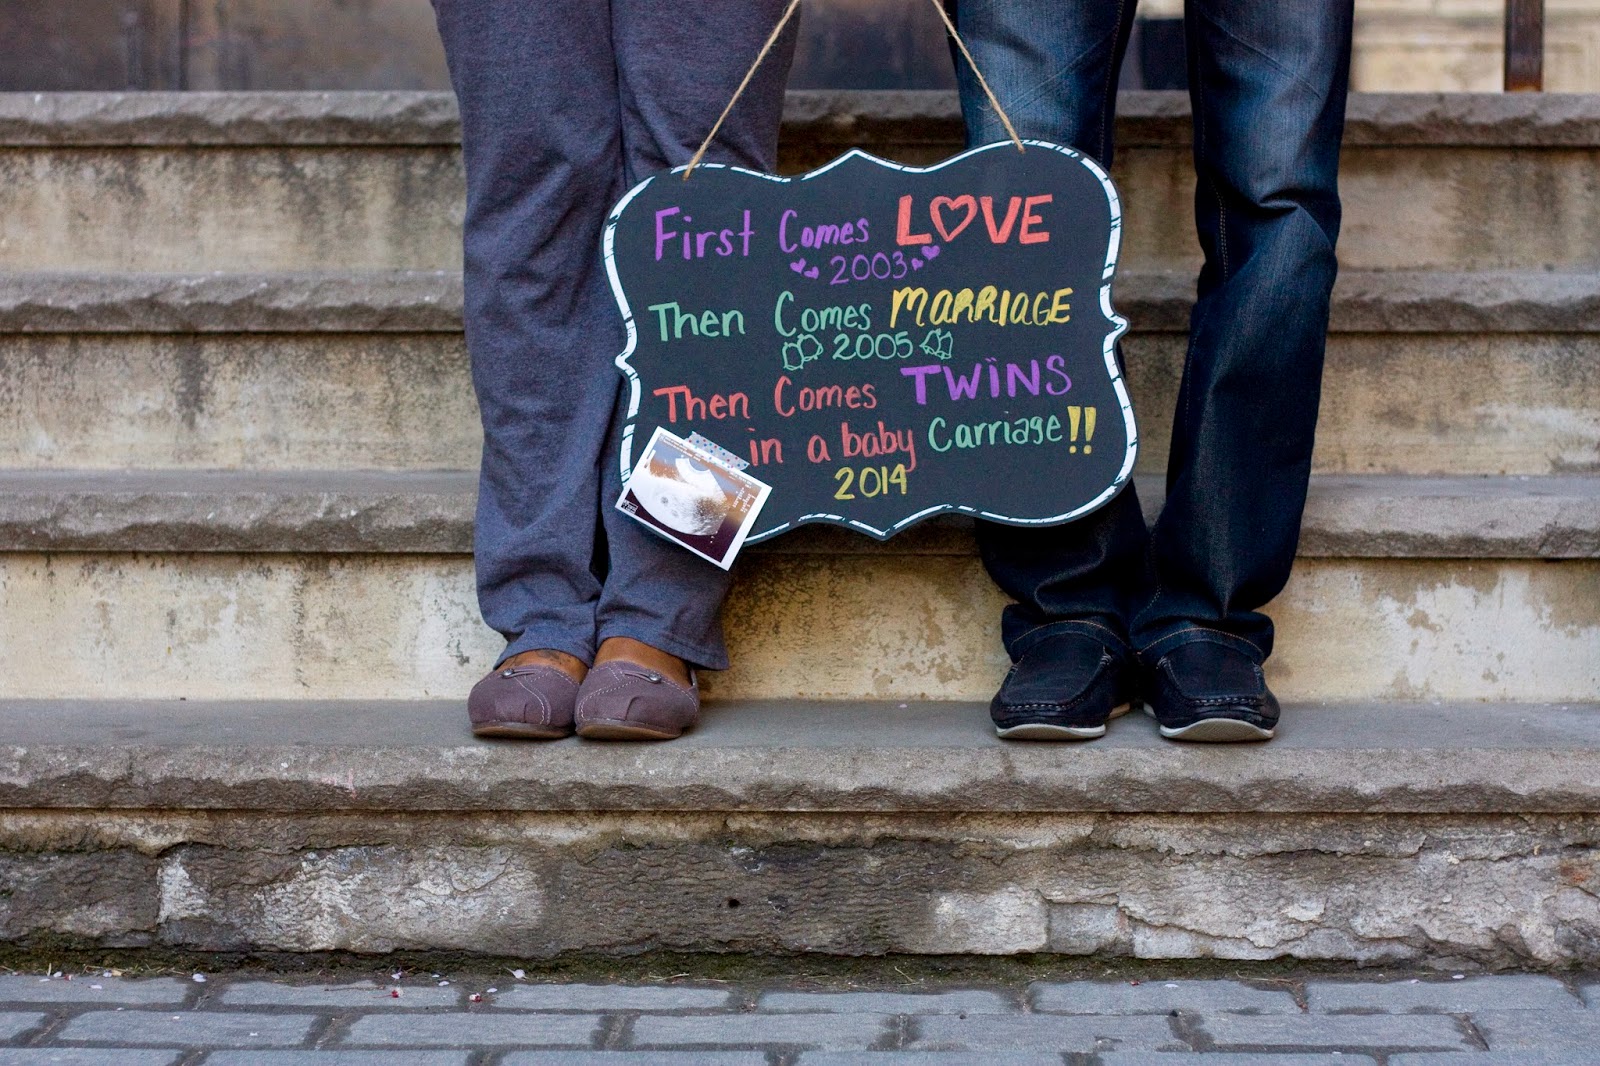 First Comes LOVE
2003
Then Comes MARRIAGE
2005
Then Comes TWINS
in a baby Carriage!!
2014